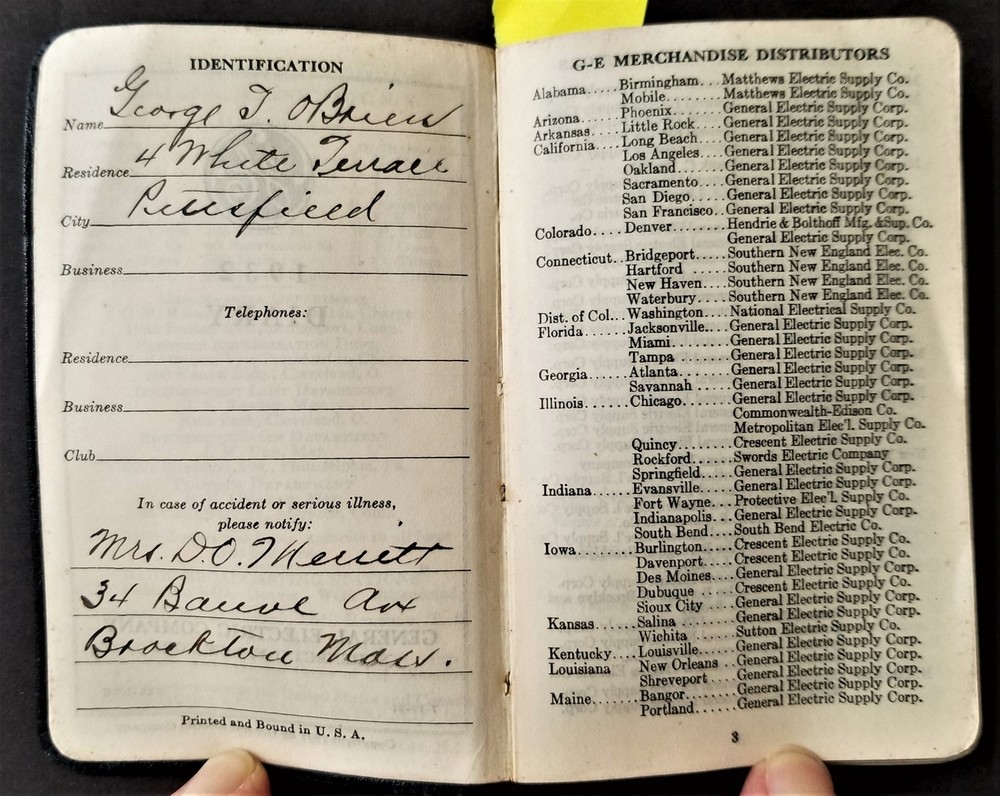 IDENTIFICATION
Name George T. O'Brien
Residence 4 White Terrace
City Pittsfield
Business
Telephones:
Residence
Business
Club
In case of accident or serious illness,
please notify:
Mrs. D.O. Merritt
34 Ave
Brockton Mass.
Printed and Bound in U. S. A.
G-E MERCHANDISE DISTRIBUTORS
Alabama.....Birmingham...Matthews Electric Supply Co.
Mobile........Matthews Electric Supply Co.
Arizona......Phoenix.......General Electric Supply Corp.
Arkansas....Little Rock....General Electric Supply Corp.
California....Long Beach....General Electric Supply Corp.
Los Angeles....General Electric Supply Corp.
Oakland.......General Electric Supply Corp.
Sacramento....General Electric Supply Corp.
San Diego.....General Electric Supply Corp.
San Francisco..General Electric Supply Corp.
Colorado....Denver........Hendrie & Bolthoff Mfg. &Sup. Co.
General Electric Supply Corp.
Connecticut..Bridgeport.....Southern New England Elec. Co.
Hartford ......Southern New England Elec. Co.
New Haven....Southern New England Elec. Co.
Waterbury....Southern New England Elec. Co.
Dist. of Col...Washington....National Electrical Supply Co.
Florida......Jacksonville...General Electric Supply Corp.
Miami........General Electric Supply Corp.
Tampa .......General Electric Supply Corp.
Georgia......Atlanta.......General Electric Supply Corp.
Savannah .....General Electric Supply Corp.
Illinois.......Chicago.......General Electric Supply Corp.
Commonwealth-Edison Co.
Metropolitan Elec'l. Supply Co.
Quincy........Crescent Electric Supply Co.
Rockford......Swords Electric Company
Springfield.....General Electric Supply Corp.
Indiana......Evansville.....General Electric Supply Corp.
Fort Wayne...Protective Elec'l. Supply Co.
Indianapolis...General Electric Supply Corp.
South Bend....South Bend Electric Co.
Iowa.........Burlington.....Crescent Electric Supply Co.
Davenport.....Crescent Electric Supply Co.
Des Moines....General Electric Supply Corp.
Dubuque .....Crescent Electric Supply Co.
Sioux City .....General Electric Supply Corp.
Kansas......Salina ........General Electric Supply Corp.
Wichita ......Sutton Electric Co.
Kentucky....Louisville......General Electric Supply Corp.
Louisiana New Orleans ..General Electric Supply Corp.
Shreveport ....General Electric Supply Corp.
Maine.......Bangor........General Electric Supply Corp.
Portland.......General Electric Supply Corp.
3